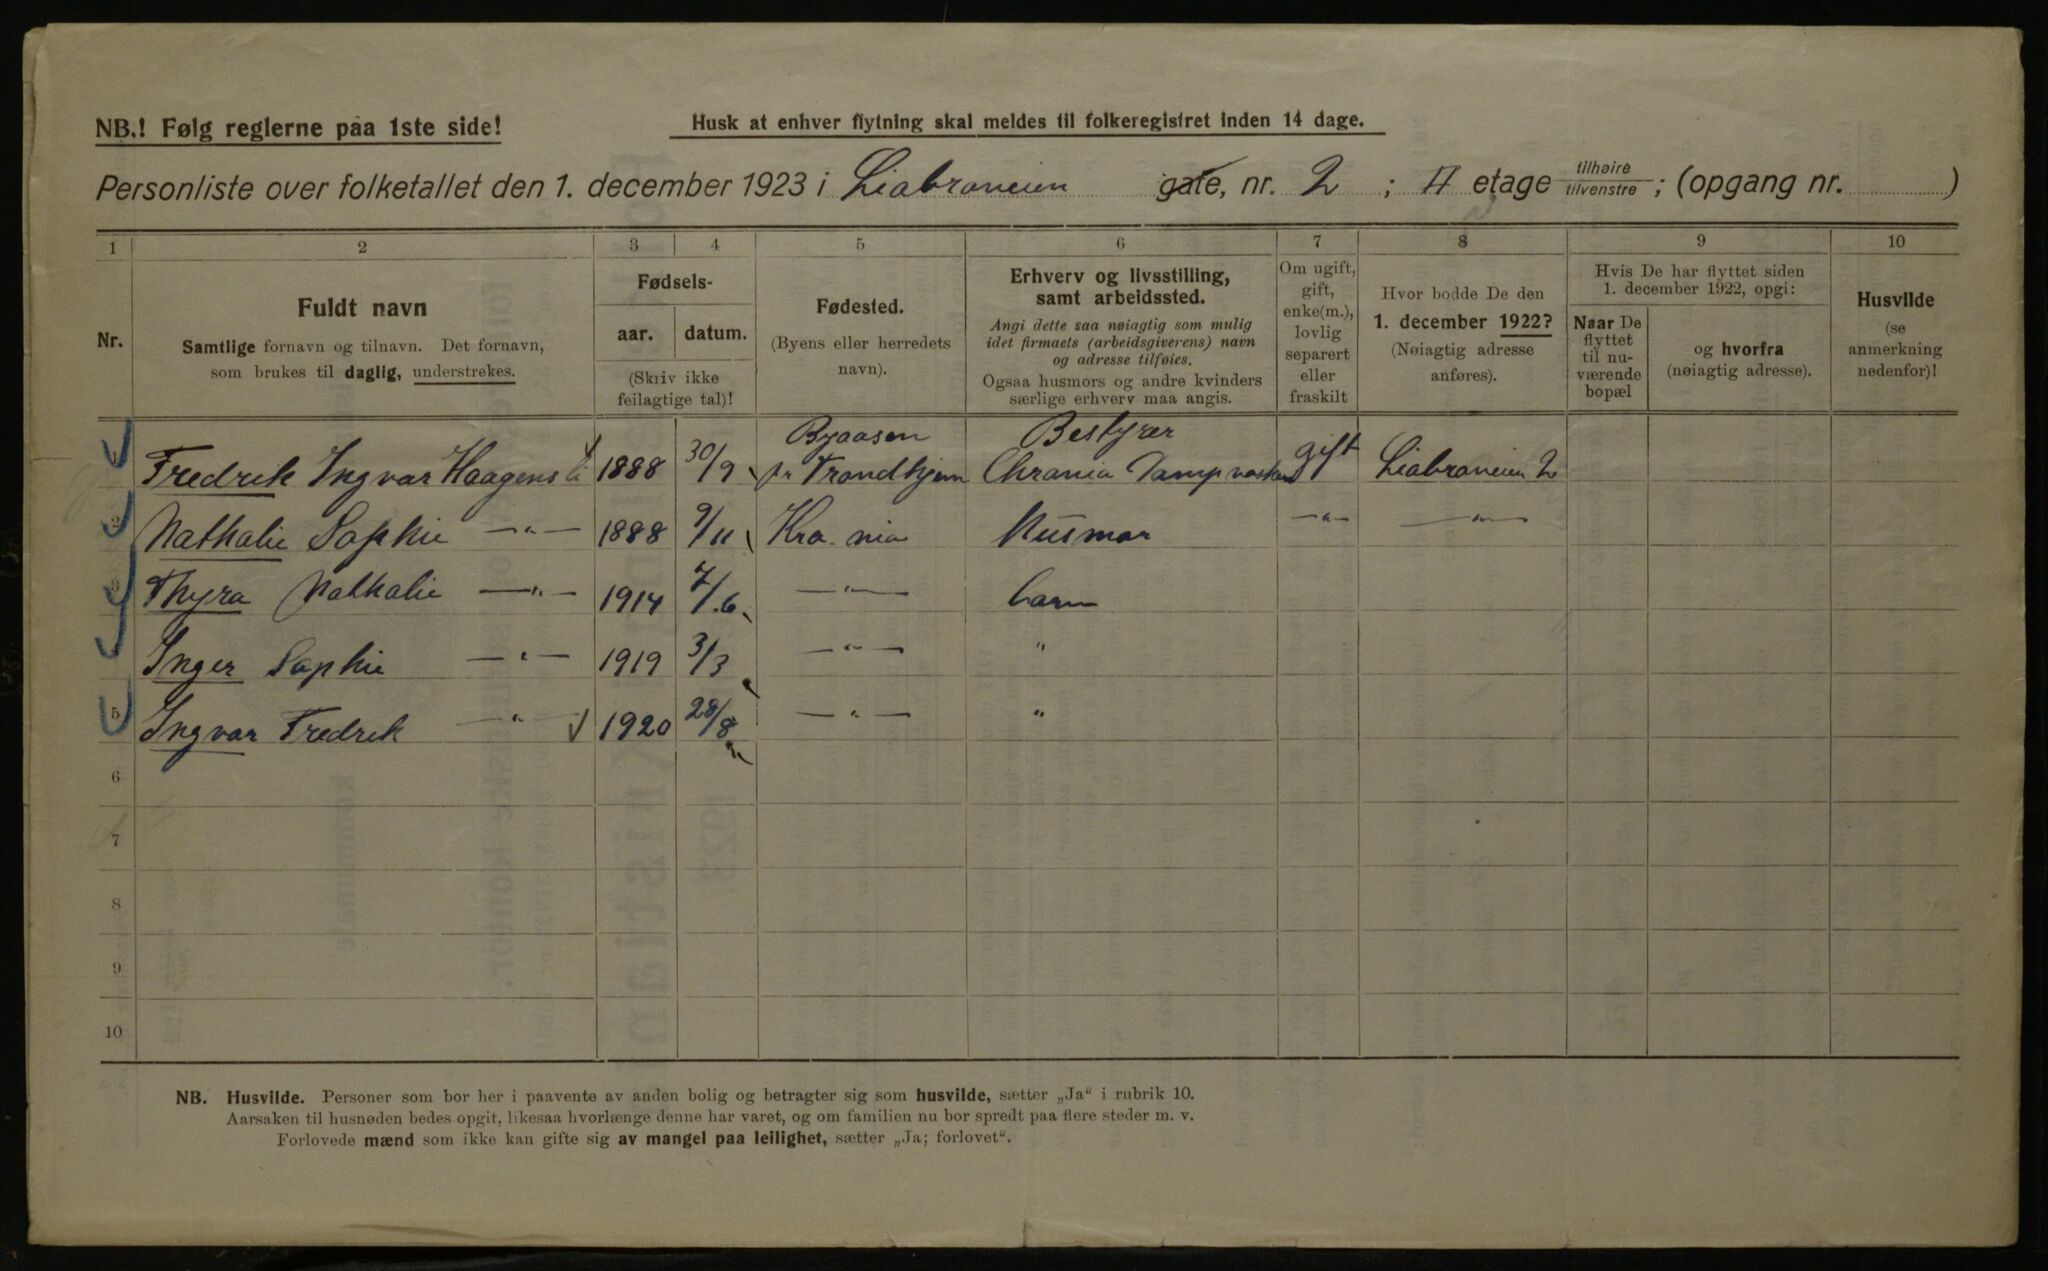 NB.! Følg reglerne paa 1ste side!
Husk at enhver flytning skal meldes til folkeregistret inden 14 dage.
Personliste over folketallet den 1. december 1923 i Liabroveien gate, nr. 2 ; II etage tilhøire tilvenstre ; (opgang nr. )
1 2 3 4 5 6 7 8 9 10
Nr.
Fuldt navn
Samtlige fornavn og tilnavn. Det fornavn,
som brukes til daglig, understrekes.
Fødsels-
aar. datum.
(Skriv ikke
feilagtige tal)!
Fødested.
(Byens eller herredets
navn).
Erhverv og livsstilling,
samt arbeidssted.
Angi dette saa nøiagtig som mulig
idet firmaets (arbeidsgiverens) navn
og adresse tilføies.
Ogsaa husmors og andre kvinders
særlige erhverv maa angis.
Om ugift,
gift,
enke(m.),
lovlig
separert
eller
fraskilt
Hvor bodde De den
1. december 1922?
(Nøiagtig adresse
anføres).
Hvis De har flyttet siden
1. december 1922, opgi:
Naar De
flyttet
til nu-
værende
bopæl
og hvorfra
(nøiagtig adresse).
Husvilde
(se
anmerkning
nedenfor)!
Byaasen Bestyrer
1 Fredrik Ingvar Haagensli 1888 30/9 pr Trondhjem Chrania Dampvaskeri gift Liabroveien 2
2 Nathalie Sophie —"— 1888 9/11 Kra.nia Husmor —"— —"—
3 Thyra Nathalie —"— 1914 7/6 —"— Barn
Inger Sophie —"— 1919 3/3 —"— "
5 Ingvar Fredrik —"— 1920 28/8 —"— "
6
7
8
9
10
NB. Husvilde. Personer som bor her i paavente av anden bolig og betragter sig som husvilde, sætter „Ja“ i rubrik 10.
Aarsaken til husnøden bedes opgit, likesaa hvorlænge denne har varet, og om familien nu bor spredt paa flere steder m. v.
Forlovede mænd som ikke kan gifte sig av mangel paa leilighet, sætter „Ja; forlovet“.